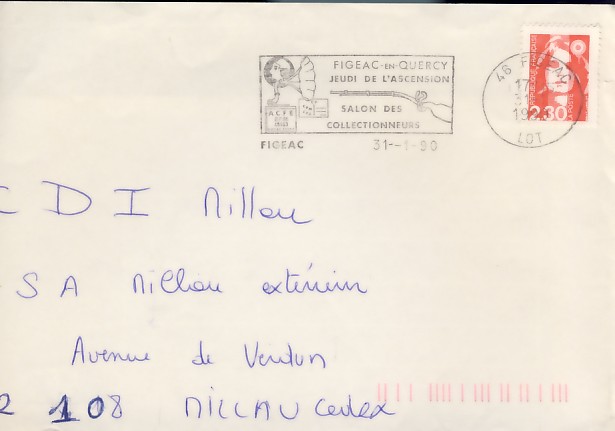 FIGEAC-EN-QUERCY
JEUDI DE L'ASCENSION
SALON DES
COLLECTIONNEURS
ACFE
FIGEAC 31--1-90
46 FIGEAC
17
31
19
LOT
REPUBLIQUE FRANÇAISE
LA POSTE
2,30
C D I Millau
S A Millau extérieur
Avenue de Verdun
2 108 MILLAU Cedex